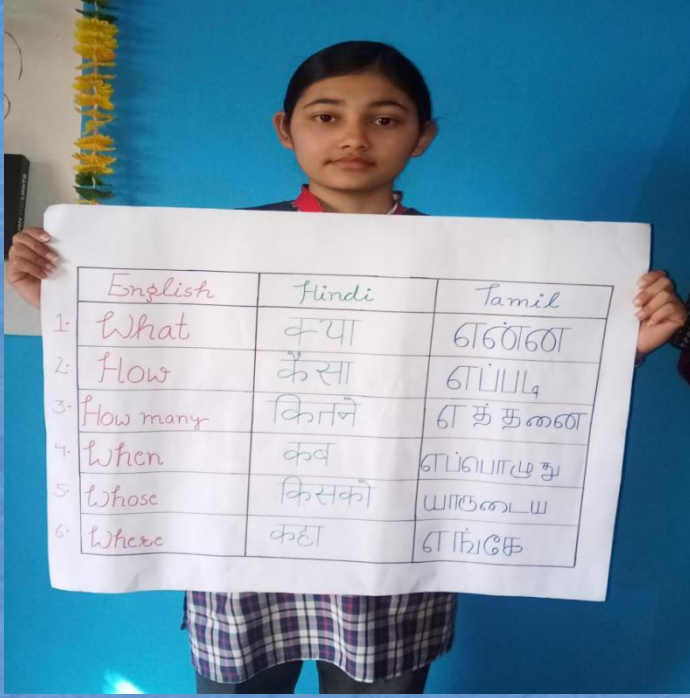 English Hindi Tamil
1. What क्या என்ன
2. How कैसा எப்படி
3. How many कितने எத்தனை
4. When कब எப்பொழுது
5. Whose किसको யாருடைய
6. Where कहा எங்கே